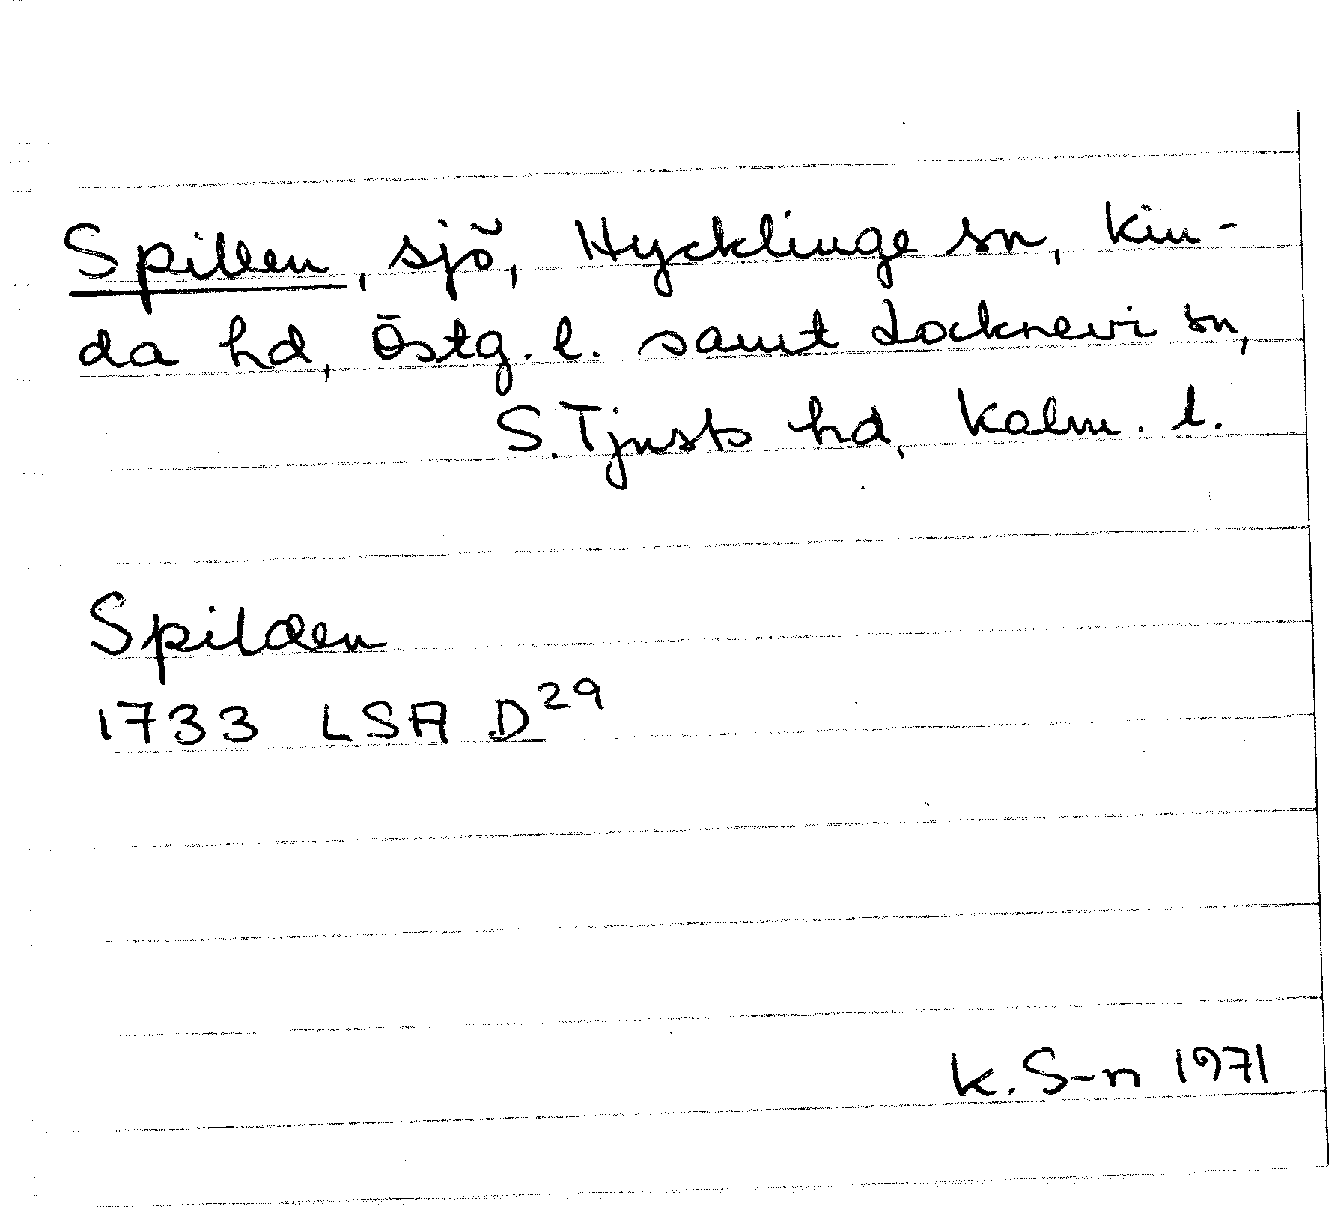 Spillen, sjö, Hycklinge sn, Kin-
da hd, Östg. l. samt Locknevi sn,
S. Tjusts hd, Kalm. l.
Spilden
1733 LSA D29
K. S-n 1971